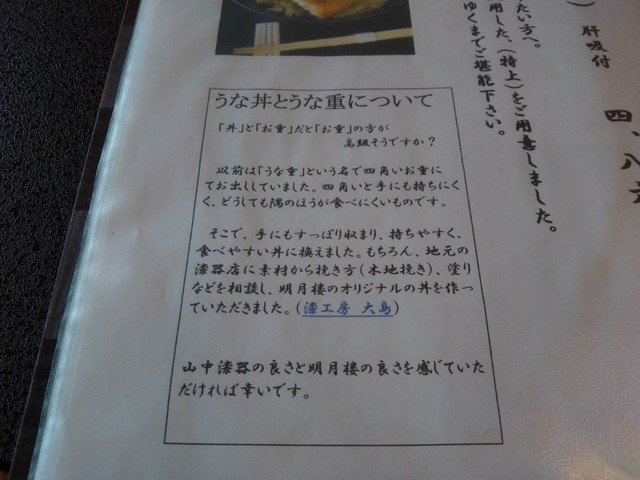 うな丼とうな重について
「丼」と「お重」だと「お重」の方が
高級そうですか？
以前は「うな重」という名で四角いお重に
てお出ししていました。四角いと手にも持ちにく
く、どうしても隅のほうが食べにくいものです。
そこで、手にもすっぽり収まり、持ちやすく、
食べやすい丼に換えました。もちろん、地元の
漆器店に素材から挽き方（木地挽き）、塗り
などを相談し、明月楼のオリジナルの丼を作っ
ていただきました。（漆工房 大島）
山中漆器の良さと明月楼の良さを感じていた
だければ幸いです。
）肝吸付
四、八
たい方へ。
用した、（特上）をご用意しました。
ゆくまでご堪能下さい。